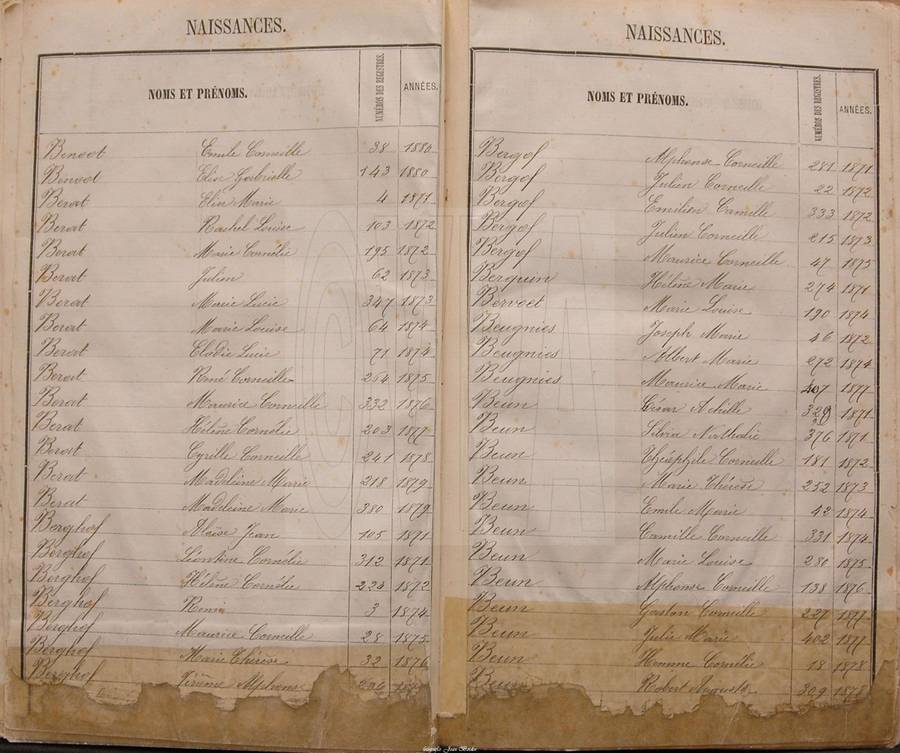 NAISSANCES.
NOMS ET PRÉNOMS. NUMÉROS DES REGISTRES. ANNÉES.
Benoot Emile Corneille 38 1880
Benoot Elise Gabrielle 143 1880
Berat Elise Marie 4 1871
Berat Rachel Louise 103 1872
Berat Marie Cornélie 195 1872
Berat Julien 62 1873
Berat Marie Lucie 347 1873
Berat Marie Louise 64 1874
Berat Elodie Lucie 71 1874
Berat René Corneille 264 1875
Berat Maurice Corneille 332 1876
Berat Hélène Cornélie 203 1877
Berat Cyrille Corneille 241 1878
Berat Madeleine Marie 218 1879
Berat Madeleine Marie 380 1879
Berghof Aloïse Jean 105 1871
Berghof Léontine Cornélie 312 1871
Berghof Hélène Cornélie 224 1872
Berghof Remi 3 1874
Berghof Maurice Corneille 28 1875
Berghof Marie Thérèse 32 1876
Berghof Jérôme Alphons
NAISSANCES.
NOMS ET PRÉNOMS. NUMÉROS DES REGISTRES. ANNÉES.
Bergof Alphonse Corneille 281 1871
Bergof Julien Corneille 22 1872
Bergof Emilien Camille 333 1872
Bergof Julien Corneille 215 1873
Bergof Maurice Corneille 47 1875
Berquin Hélène Marie 274 1871
Bervoet Marie Louise 190 1874
Beugnies Joseph Marie 46 1872
Beugnies Albert Marie 272 1874
Beugnies Maurice Marie 407 1877
Beun César Achille 329 1871
Beun Silvia Nathalie 376 1871
Beun Théophile Corneille 181 1872
Beun Marie Thérèse 252 1873
Beun Emile Marie 42 1874
Beun Camille Corneille 331 1874
Beun Marie Louise 280 1875
Beun Alphonse Corneille 138 1876
Beun Gaston Corneille 227 1877
Beun Julie Marie 402 1877
Beun Cornélie 18 1878
Beun Robert 309 1878